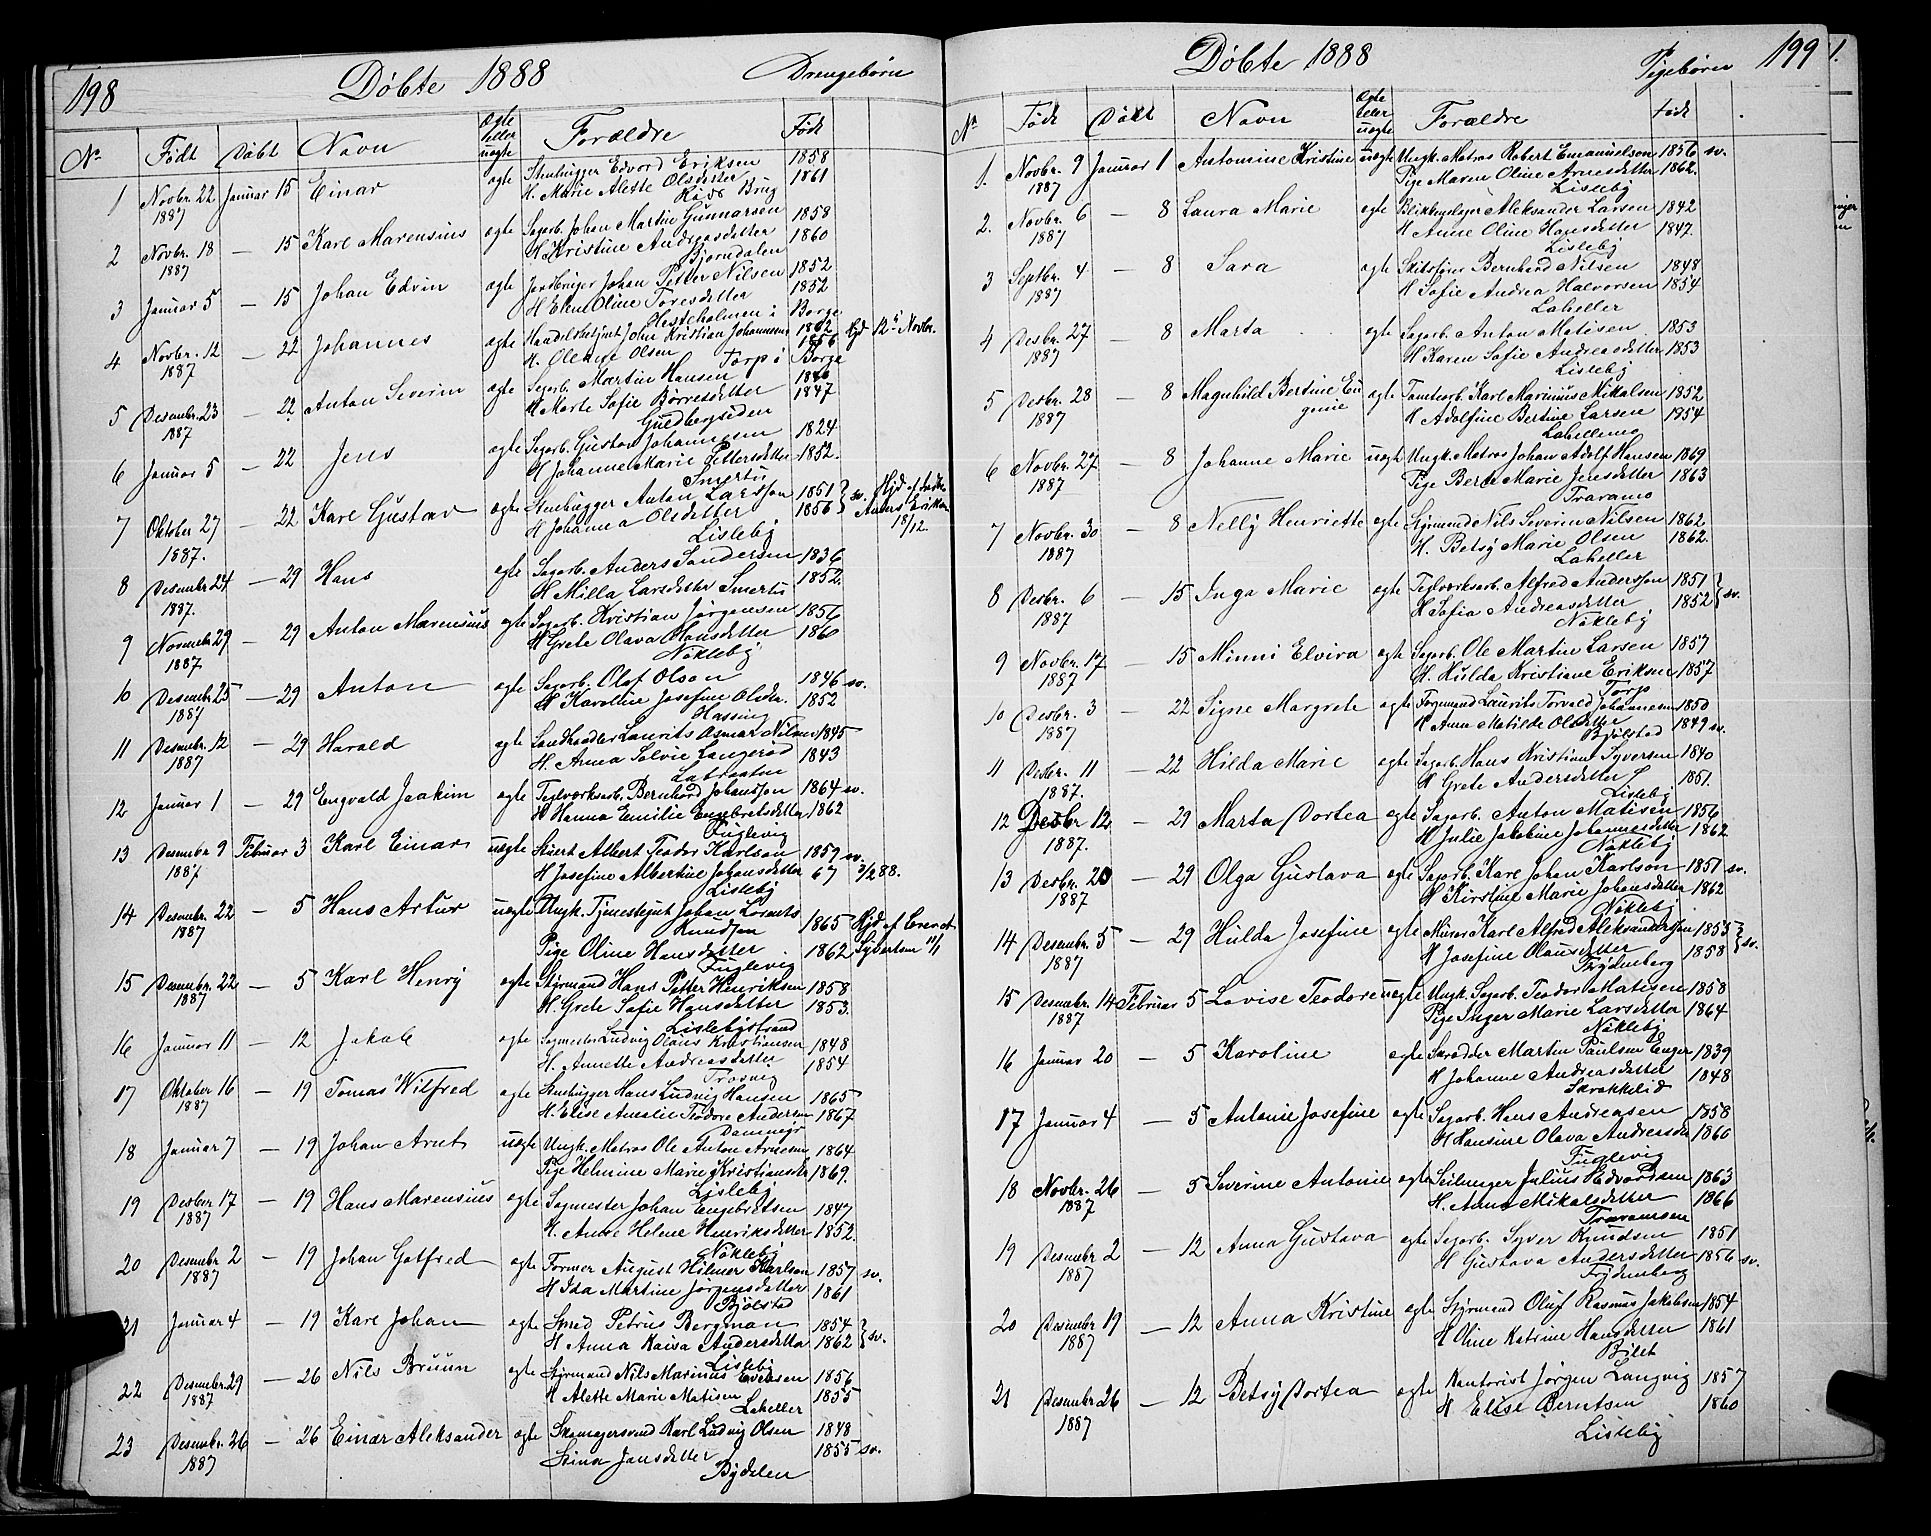 198
Døbte 1888
Drengebørn
No Født Døbt Navn Ægte eller uægte Forældre Født
1 Novbr. 22 1887 Januar 15 Einar ægte Stenhugger Edvord Eriksen 1858
H. Marie Alette Olsdatter 1861
Røds Brug
2 Novbr. 18 1887 — 15 Karl Marensius ægte Sagarb. Johan Martin Gunnarsen 1858
H Kristine Andreasdatter 1860
Bjørndalen
3 Januar 5 — 15 Johan Edvin ægte Jordbruger Johan Petter Nilsen 1852
H Elen Oline Toresdatter 1852
Hesteholmen i Borge
4 Novbr. 12 1887 — 22 Johannes ægte Handelsbetjent John Kristian Johannesen Hjd 12te Novbr.
H. Olense Olsen 1856
Torp i Borge
5 Desembr. 23 1887 — 22 Anton Severin ægte Sagarb. Martin Hansen 1846
H Marte Sofie Børresdatter 1847
Guldbergseden
6 Januar 5 — 22 Jens ægte Sagarb. Gustav Johannesen 1824
H Johanne Marie Pettersdatter 1852.
Smertu
7 Oktober 27 1887. — 22 Karl Gustav ægte Stenhugger Anton Larsson 1851 sv. Hjd af
H Johanna Olsdatter 1856 Anders Eriksen 18/12
Lisleby
8 Desembr 24 1887. — 29 Hans ægte Sagarb. Anders Sandersen 1836
H Milla Larsdatter Smertu 1852.
9 Novembr 29 1887 — 29 Anton Marensius ægte Sagarb. Kristian Jörgensen 1856
H Grete Olava Hansdatter 1860
Nökleby
10 Desembr 25 1887 — 29 Anton ægte Sagarb. Olof Olson 1846 sv.
H Karoline Josefine Olsdtr. 1852
Hassing
11 Desembr. 12 1887 — 29 Harald ægte Landhandler Laurits Asmar Nilsen 1845
H. Anna Solvie Langerød 1843
12 Januar 1 — 29 Engvald Joakim ægte Teglværksarb. Bernhard Johansson 1864 sv.
H Hanna Emilie Engebretsdatter 1862
Fuglevig
13 Desembr 9 1887 Februar 3 Karl Einar uægte Stuert Albert Teodor Karlson 1859 sv.
H Josefine Albertine Johansdatter 67 3/2 88.
Lisleby
14 Desembr. 22 1887 — 5 Hans Artur uægte Ungk. Tjenestegut Johan Lorents Knudsen 1865 Hjd af Evend
Pige Oline Hansdatter 1862 Syvertsen 11/1
Fuglevig
15 Desembr. 22 1887 — 5 Karl Henry ægte Styrmand Hans Petter Henriksen 1858
H. Grete Sofie Hansdatter 1853.
Lislebystrand
16 Januar 11 — 12 Jakob ægte Sagmester Ludvig Olaus Kristiansen 1848
H. Annette Andreasdatter 1854
Trosvig
17 Oktober 16 1887 — 19 Tomas Wilfred ægte Stenhugger Hans Ludvig Hansen 1865
H. Elise Amalie Teodore Andersen 1867
Dammyr
18 Januar 7 — 19 Johan Arnt uægte Ungk. Matros Ole Anton Arnesen 1864
Pige Helmine Marie Kristiansdtr 1869.
Lisleby
19 Desbr 17 1887 — 19 Hans Marensius ægte Sagmester Johan Engebretsen 1847
H. Anne Helene Henriksdatter 1852.
Nökleby
20 Desembr 2 1887 — 19 Johan Gotfred ægte Former August Hilmer Karlson 1857 sv.
H Ida Martine Jørgensdatter 1861
Bjølstad
21 Januar 4 — 19 Karl Johan ægte Smed Petrus Bergman 1854 sv.
H Anna Kaisa Andersdatter 1862
Lisleby
22 Desembr. 29 1887 — 26 Nils Bruun ægte Styrmand Nils Marinus Evensen 1856
H Alette Marie Matisen 1855
Laheller
23 Desembr. 26 1887 — 26 Einar Aleksander ægte Skomagersvend Karl Ludvig Olsen 1848
Stina Jonsdatter 1855 sv.
Bydelen
199
Døbte 1888
Pigebørn
No Født Døbt Navn Ægte eller uægte Forældre Født
1. Novbr. 9 1887 Januar 1 Antomine Kristine uægte Ungk. Matros Robert Emanuelson 1856 sv.
Pige Maren Oline Arnesdatter 1862.
Lisleby
2. Novbr. 6 1887 — 8 Laura Marie ægte Blikkenslager Aleksander Larsen 1842
H Anne Oline Hansdatter 1847.
Lisleby
3 Septbr. 4 1887 — 8 Sara ægte Skibsfører Bernhard Nilsen 1848
H Sofie Andrea Halvorsen 1854
Laheller
4 Desbr. 27 1887 — 8 Marta ægte Sagarb. Anton Matisen 1853
H Karen Sofie Andreasdatter 1853
Lisleby
5 Desbr. 28 1887 — 8 Magnhild Bertine Eugenie ægte Tomtearb. Karl Marinius Mikalsen 1852
H Adolfine Bertine Larsen 1854
Lahellemo
6 Novbr. 27 1887 — 8 Johanne Marie uægte Ungk. Matros Johan Adolf Hansen 1869
Pige Berte Marie Jensdatter 1863
Traramo
7 Novbr. 30 1887 — 8 Nelly Henriette ægte Styrmand Nils Severin Nilsen 1862
H. Betsy Marie Olsen 1862.
Laheller
8 Desbr. 6 1887 — 15 Inga Marie ægte Teglværksarb. Alfred Andersson 1851 sv.
H Sofia Andreasdatter 1852
Nökleby
9 Novbr. 17 1887 — 15 Minni Elvira ægte Sagarb. Ole Martin Larsen 1857
H. Hulda Kristiane Eriksen 1857
Torp
10 Desbr. 3 1887 — 22 Signe Margrete ægte Formand Laurits Torvald Johannesen 1850
H Anne Matilde Olsdatter 1849 sv.
Bjølstad
11 Desbr. 11 1887. — 22 Hilda Marie ægte Sagarb. Hans Kristian Syversen 1840
H Grete Andersdatter 1851.
Lisleby
12 Desbr 12 1887. — 29 Marta Dortea ægte Sagarb. Anton Matisen 1856
H Julie Jakobine Johannesdatter 1862
Nökleby
13 Desbr. 20 1887 — 29 Olga Gustava ægte Sagarb. Karl Johan Karlson 1851 sv.
H Kirstine Marie Johansdatter 1862
Nökleby
14 Desembr. 5 1887 — 29 Hulda Josefine ægte Murer Karl Alfred Aleksandersson 1855 sv.
H Josefine Olausdatter 1858
Frydenberg
15 Desembr. 14 1887 Februar 5 Lovise Teodore uægte Ungk. Sagarb. Teodor Matisen 1858
Pige Inger Marie Larsdatter 1864
Nökleby
16 Januar 20 — 5 Karoline ægte Skrædder Martin Paulsen Enger 1839
H Johanne Andreasdatter 1848
Skrokkelid
17 Januar 4 — 5 Antonie Josefine ægte Sagarb. Hans Andreasen 1858
H Hansine Olava Andersdtr 1860
Fuglevig
18 Novbr. 26 1887 — 5 Severine Antonie ægte Seilmager Julius Edvardsen 1863
H. Anna Mikalsdatter 1866
Traraersen
19 Desembr 2 1887 — 12 Anna Gustava ægte Sagarb. Syver Knudsen 1851
H Gustava Andersdatter 1856 sv.
Frydenberg
20 Desembr 19 1887 — 12 Anna Kristine ægte Styrmand Oluf Rasmus Jakobsen 1854
H Oline Katrine Hansdatter 1861
Bilet
21 Desembr 26 1887 — 12 Betsy Dortea ægte Kontorist Jørgen Langvig 1857
H Elise Berntsen 1860
Lisleby